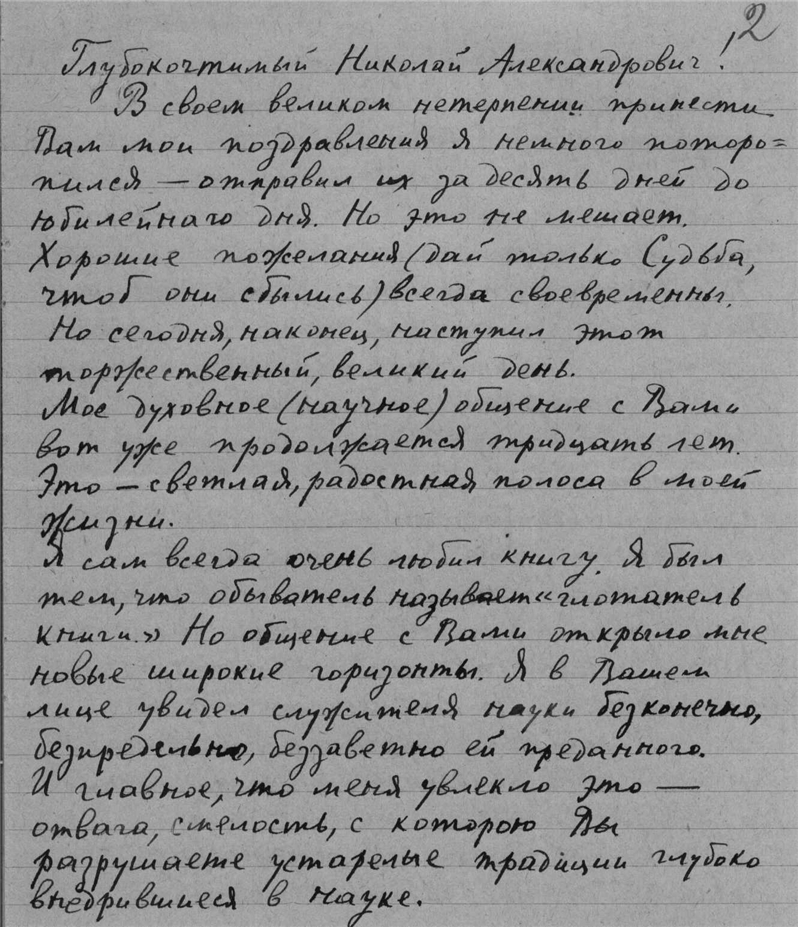 2
Глубокочтимый Николай Александрович!
В своем великом нетерпении принести
Вам мои поздравления я немного поторо=
пился — отправил их за десять дней до
юбилейнаго дня. Но это не мешает.
Хорошие пожелания (дай только Судьба,
чтоб они сбылись) всегда своевременны.
Но сегодня, наконец, наступил этот
торжественный, великий день.
Мое духовное (научное) общение с Вами
вот уже продолжается тридцать лет.
Это — светлая, радостная полоса в моей
жизни.
Я сам всегда очень любил книгу. Я был
тем, что обыватель называет «глотатель
книги.» Но общение с Вами открыло мне
новые широкие горизонты. Я в Вашем
лице увидел служителя науки безконечно,
безпредельно, беззаветно ей преданного.
И главное, что меня увлекло это —
отвага, смелость, с которою Вы
разрушаете устарелые традиции глубоко
внедрившиеся в науке.